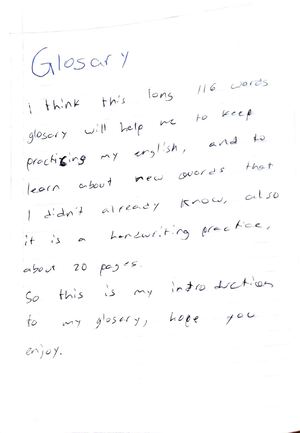 Glosary
i think this long 116 words
glosary will help me to keep
practicing my english, and to
learn about new words that
I didn't already know, also
it is a handwriting practice,
about 20 pages.
So this is my introduction
to my glosary, hope you
enjoy.